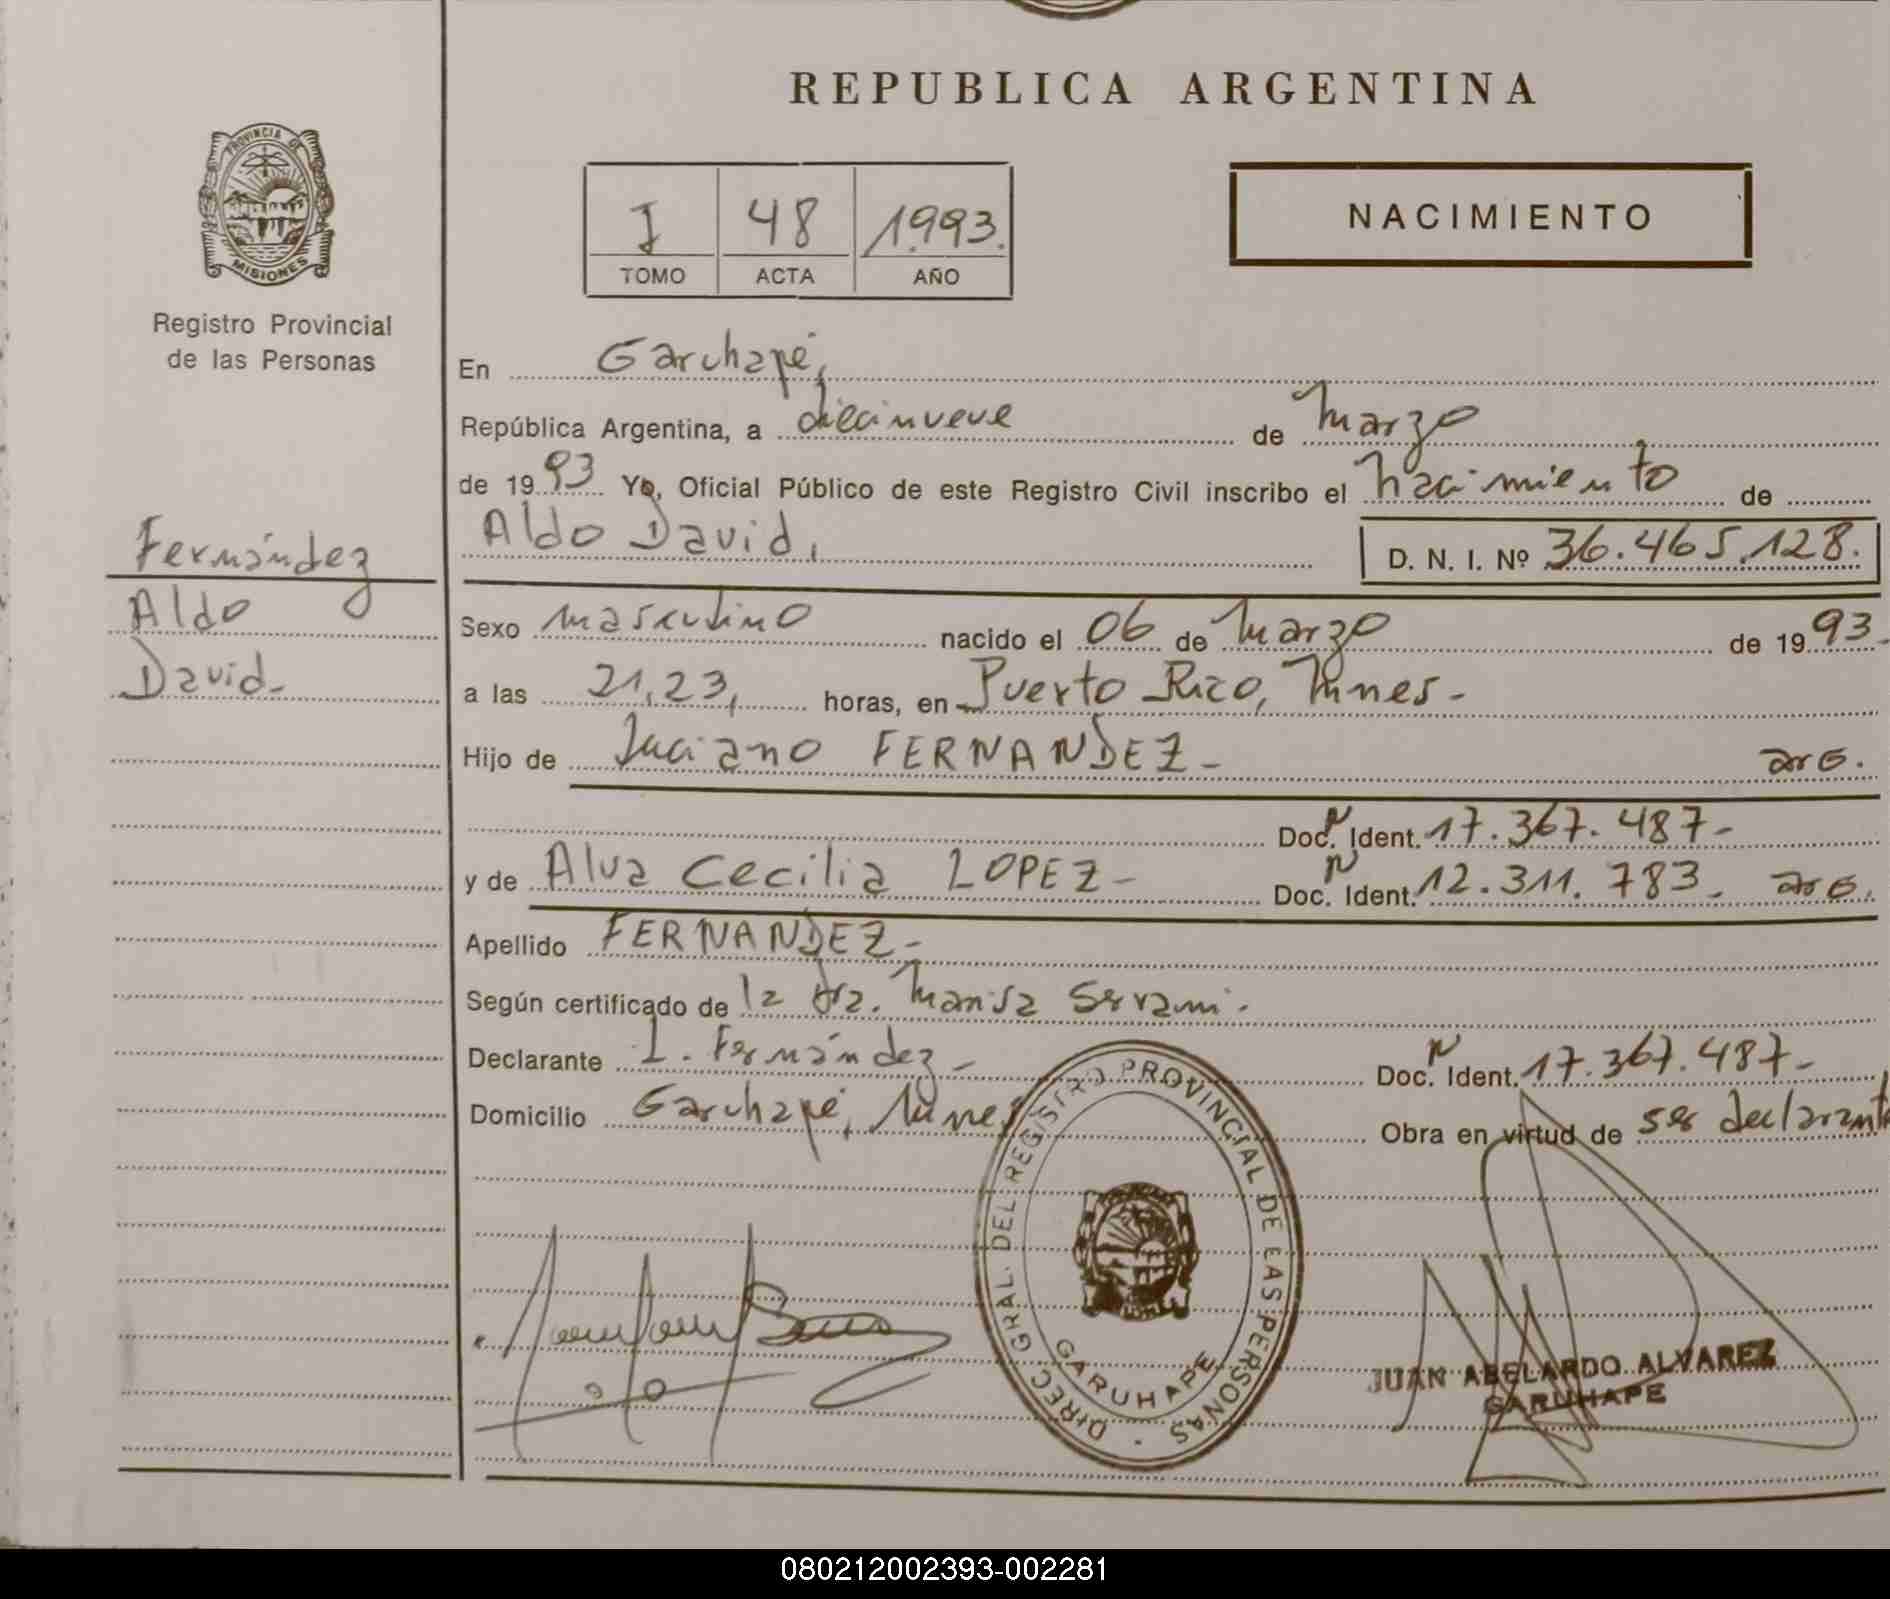 REPUBLICA ARGENTINA
PROVINCIA DE MISIONES
Registro Provincial
de las Personas
I 48 1993.
TOMO ACTA AÑO
NACIMIENTO
En Garuhapé,
República Argentina, a diecinueve de Marzo
de 1993 Yo, Oficial Público de este Registro Civil inscribo el nacimiento de
Aldo David, D. N. I. Nº 36.465.128.
Fernández
Aldo
David.-
Sexo masculino nacido el 06 de Marzo de 1993.
a las 21,23, horas, en Puerto Rico, Mnes-
Hijo de Luciano FERNANDEZ- arg.
Doc. N Ident. 17.367.487-
y de Alva Cecilia LOPEZ- Doc. N Ident. 12.311.783. arg.
Apellido FERNANDEZ-
Según certificado de la Dra. Marisa
Declarante L. Fernández- Doc. N Ident. 17.367.487-
Domicilio Garuhapé, Mnes Obra en virtud de ser declarante
DIREC. GRAL. DEL REGISTRO PROVINCIAL DE LAS PERSONAS
GARUHAPE
JUAN ABELARDO ALVAREZ
GARUHAPE
080212002393-002281